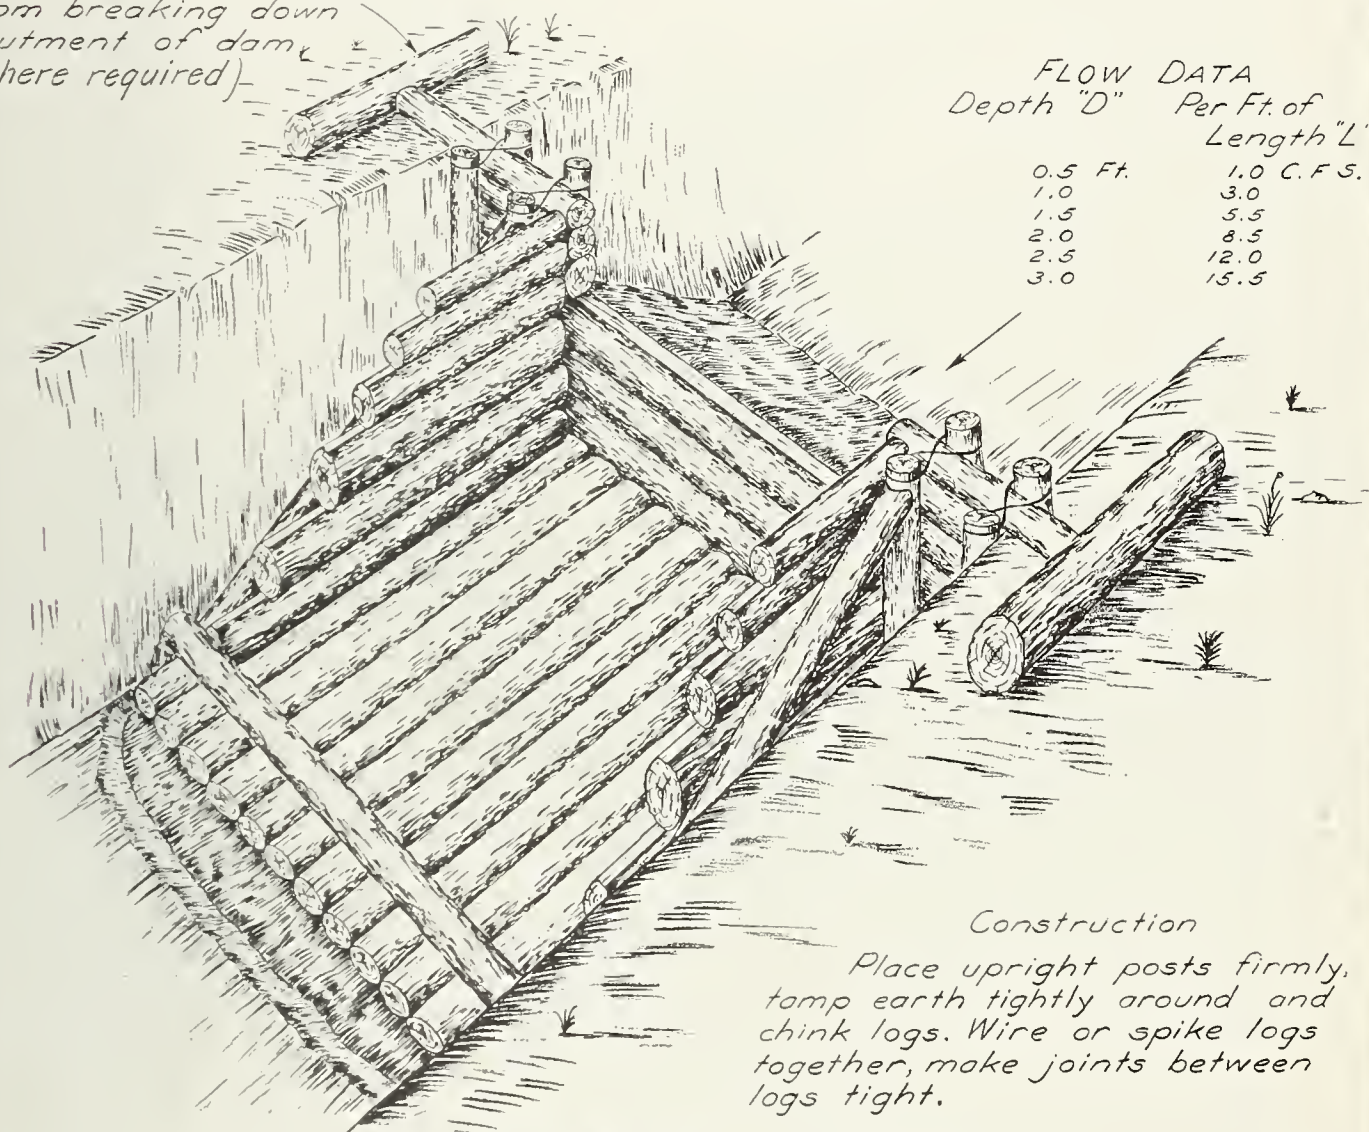 breaking down
of dam,
required)
FLOW DATA
Depth "D" Per Ft. of
Length "L"
0.5 Ft. 1.0 C. F S.
1.0 3.0
1.5 5.5
2.0 8.5
2.5 12.0
3.0 15.5
Construction
Place upright posts firmly,
tamp earth tightly around and
chink logs. Wire or spike logs
together, make joints between
logs tight.